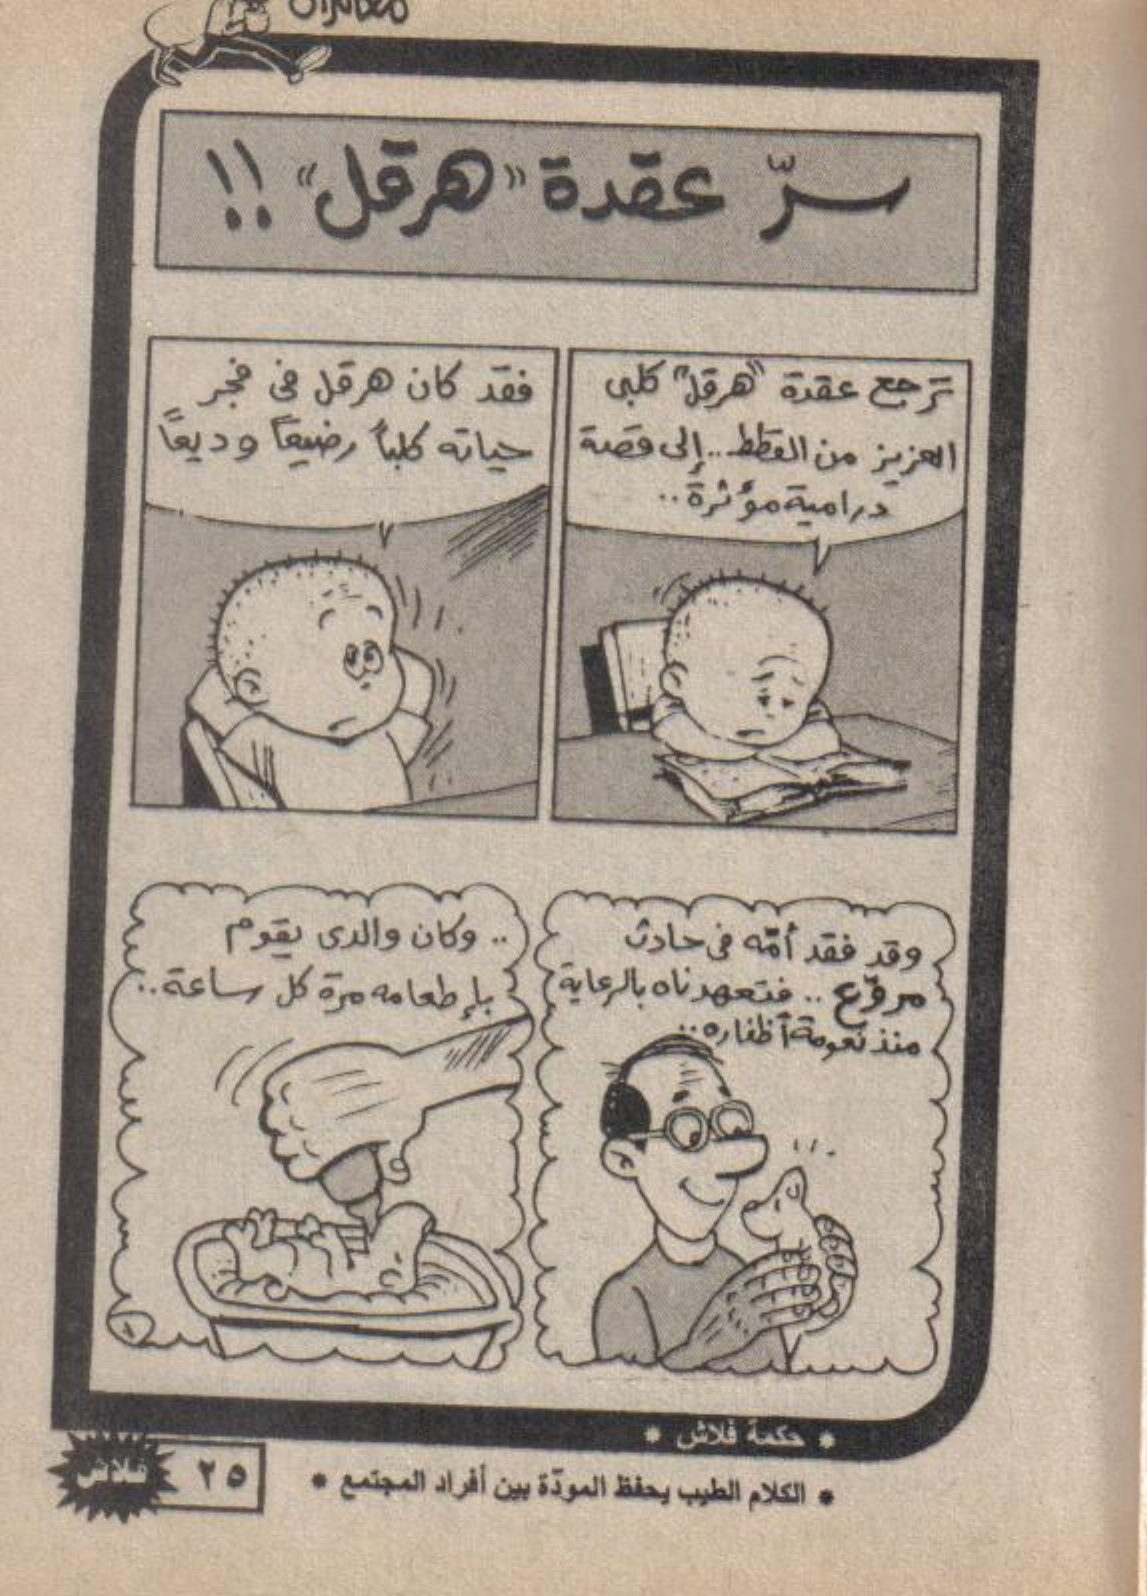 سرّ عقدة «هرقل» !!
ترجع عقدة "هرقل" كلبى
العزيز من القطط.. إلى قصة
درامية مؤثرة..
فقد كان هرقل فى فجر
حياته كلباً رضيعاً وديعاً
وقد فقد أمّه فى حادث
مروّع .. فتعهدناه بالرعاية
منذ نعومة أظفاره..
.. وكان والدى يقوم
بإطعامه مرة كل ساعة..
* حكمة فلاش *
* الكلام الطيب يحفظ المودّة بين أفراد المجتمع *
٢٥
فلاش